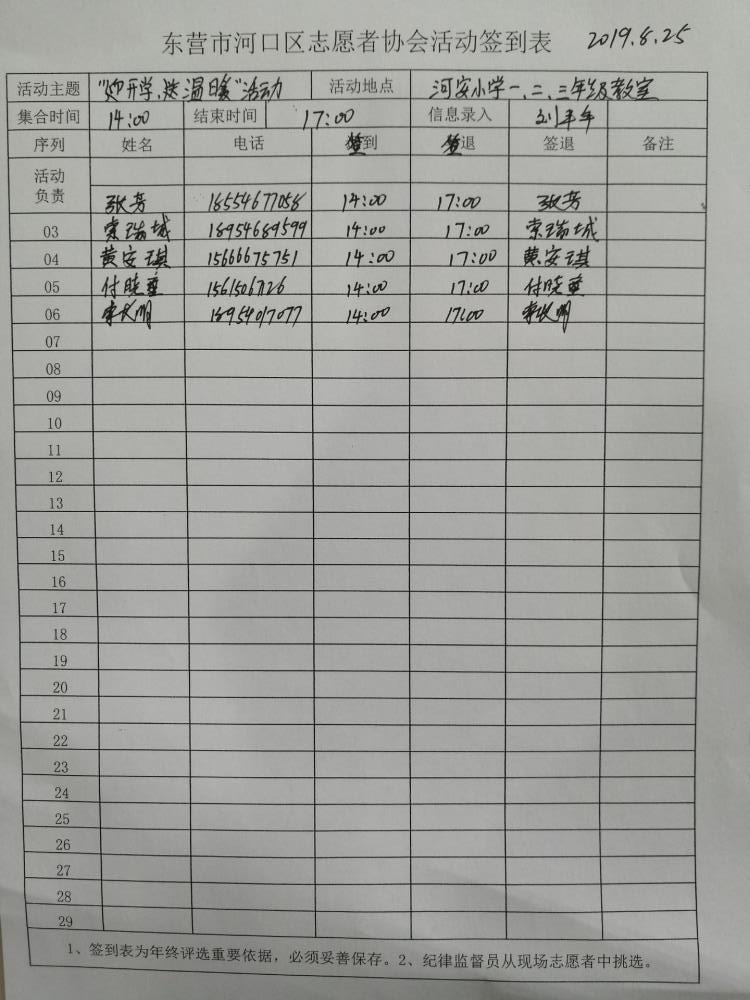 东营市河口区志愿者协会活动签到表 2019.8.25
活动主题 "迎开学,送温暖"活动 活动地点 河安小学一、二、三年级教室
集合时间 14:00 结束时间 17:00 信息录入
序列 姓名 电话 签到 签退 签退 备注
活动
负责
张芳 18554677058 14:00 17:00 张芳
03 索瑞城 18954689599 14:00 17:00 索瑞城
04 黄安琪 15666675751 14:00 17:00 黄安琪
05 付晓童 14:00 17:00 付晓童
06 18954017077 14:00 17:00
07
08
09
10
11
12
13
14
15
16
17
18
19
20
21
22
23
24
25
26
27
28
29
1、签到表为年终评选重要依据,必须妥善保存。2、纪律监督员从现场志愿者中挑选。